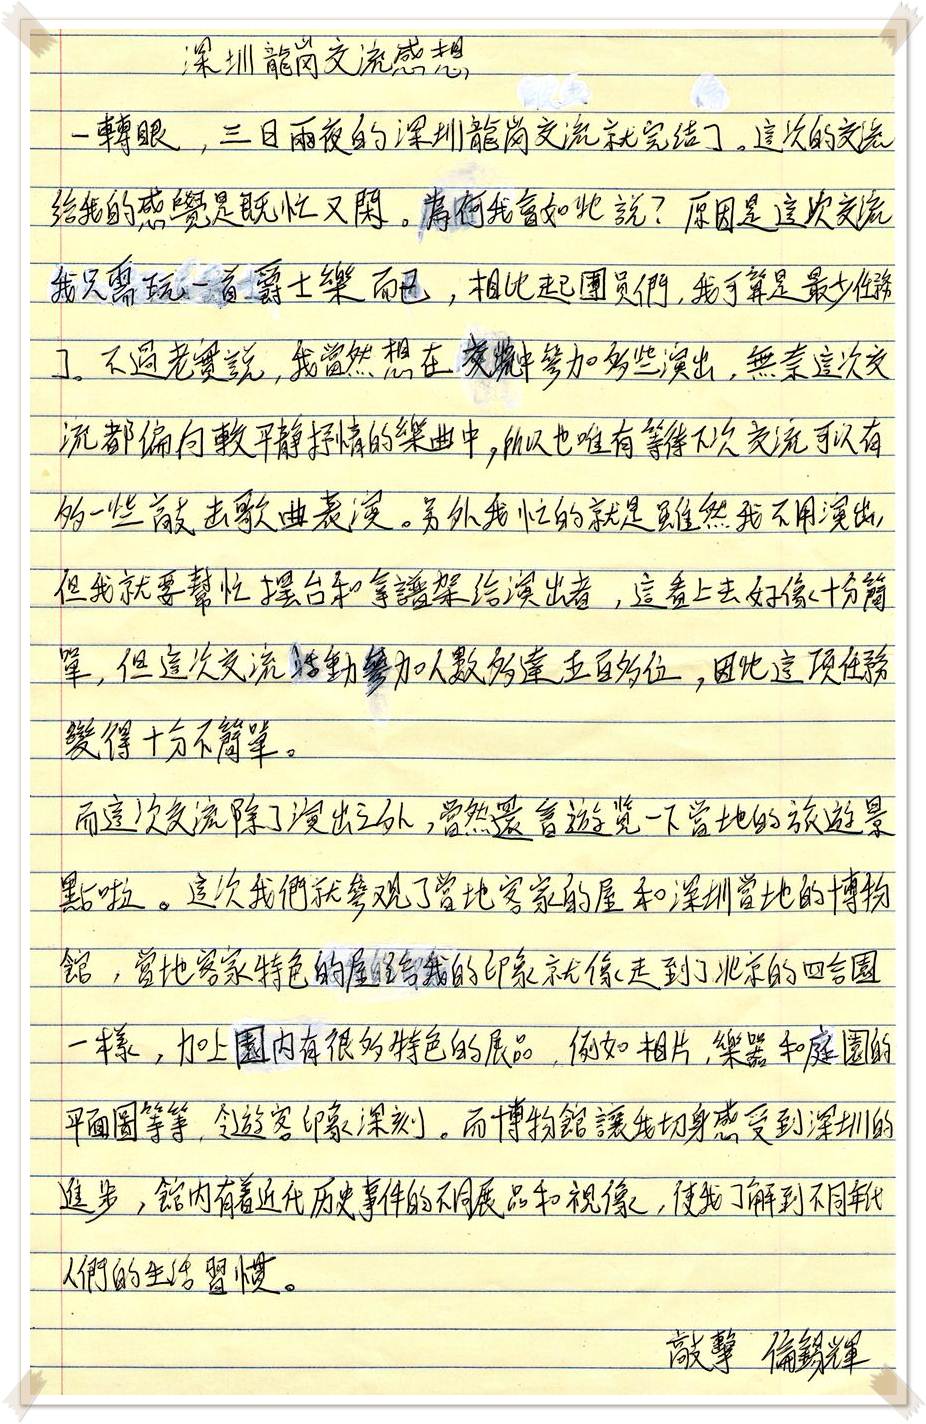 深圳龍崗交流感想
一轉眼，三日兩夜的深圳龍崗交流就完結了。這次的交流
給我的感覺是既忙又閑。為何我會如此說？原因是這次交流
我只需玩一首爵士樂而已，相比起團員們，我可算是最少任務
了。不過老實說，我當然想在交流中參加多些演出，無奈這次交
流都偏向較平靜抒情的樂曲中，所以也唯有等待下次交流可以有
多一些敲击歌曲表演。另外我忙的就是雖然我不用演出，
但我就要幫忙擺台和拿譜架給演出者，這看上去好像十分簡
單，但這次交流活動參加人數多達五百多位，因此這項任務
變得十分不簡單。
而這次交流除了演出之外，當然還會遊覽一下當地的旅遊景
點啦。這次我們就參观了當地客家的屋和深圳當地的博物
館，當地客家特色的屋的給我的印象就像走到了北京的四合園
一樣，加上園内有很多特色的展品，例如相片，樂器和庭園的
平面圖等等，令遊客印象深刻。而博物館讓我切身感受到深圳的
進步，館内有着近代历史事件的不同展品和視像，使我了解到不同年代
人們的生活習慣。
敲擊 倫錫輝